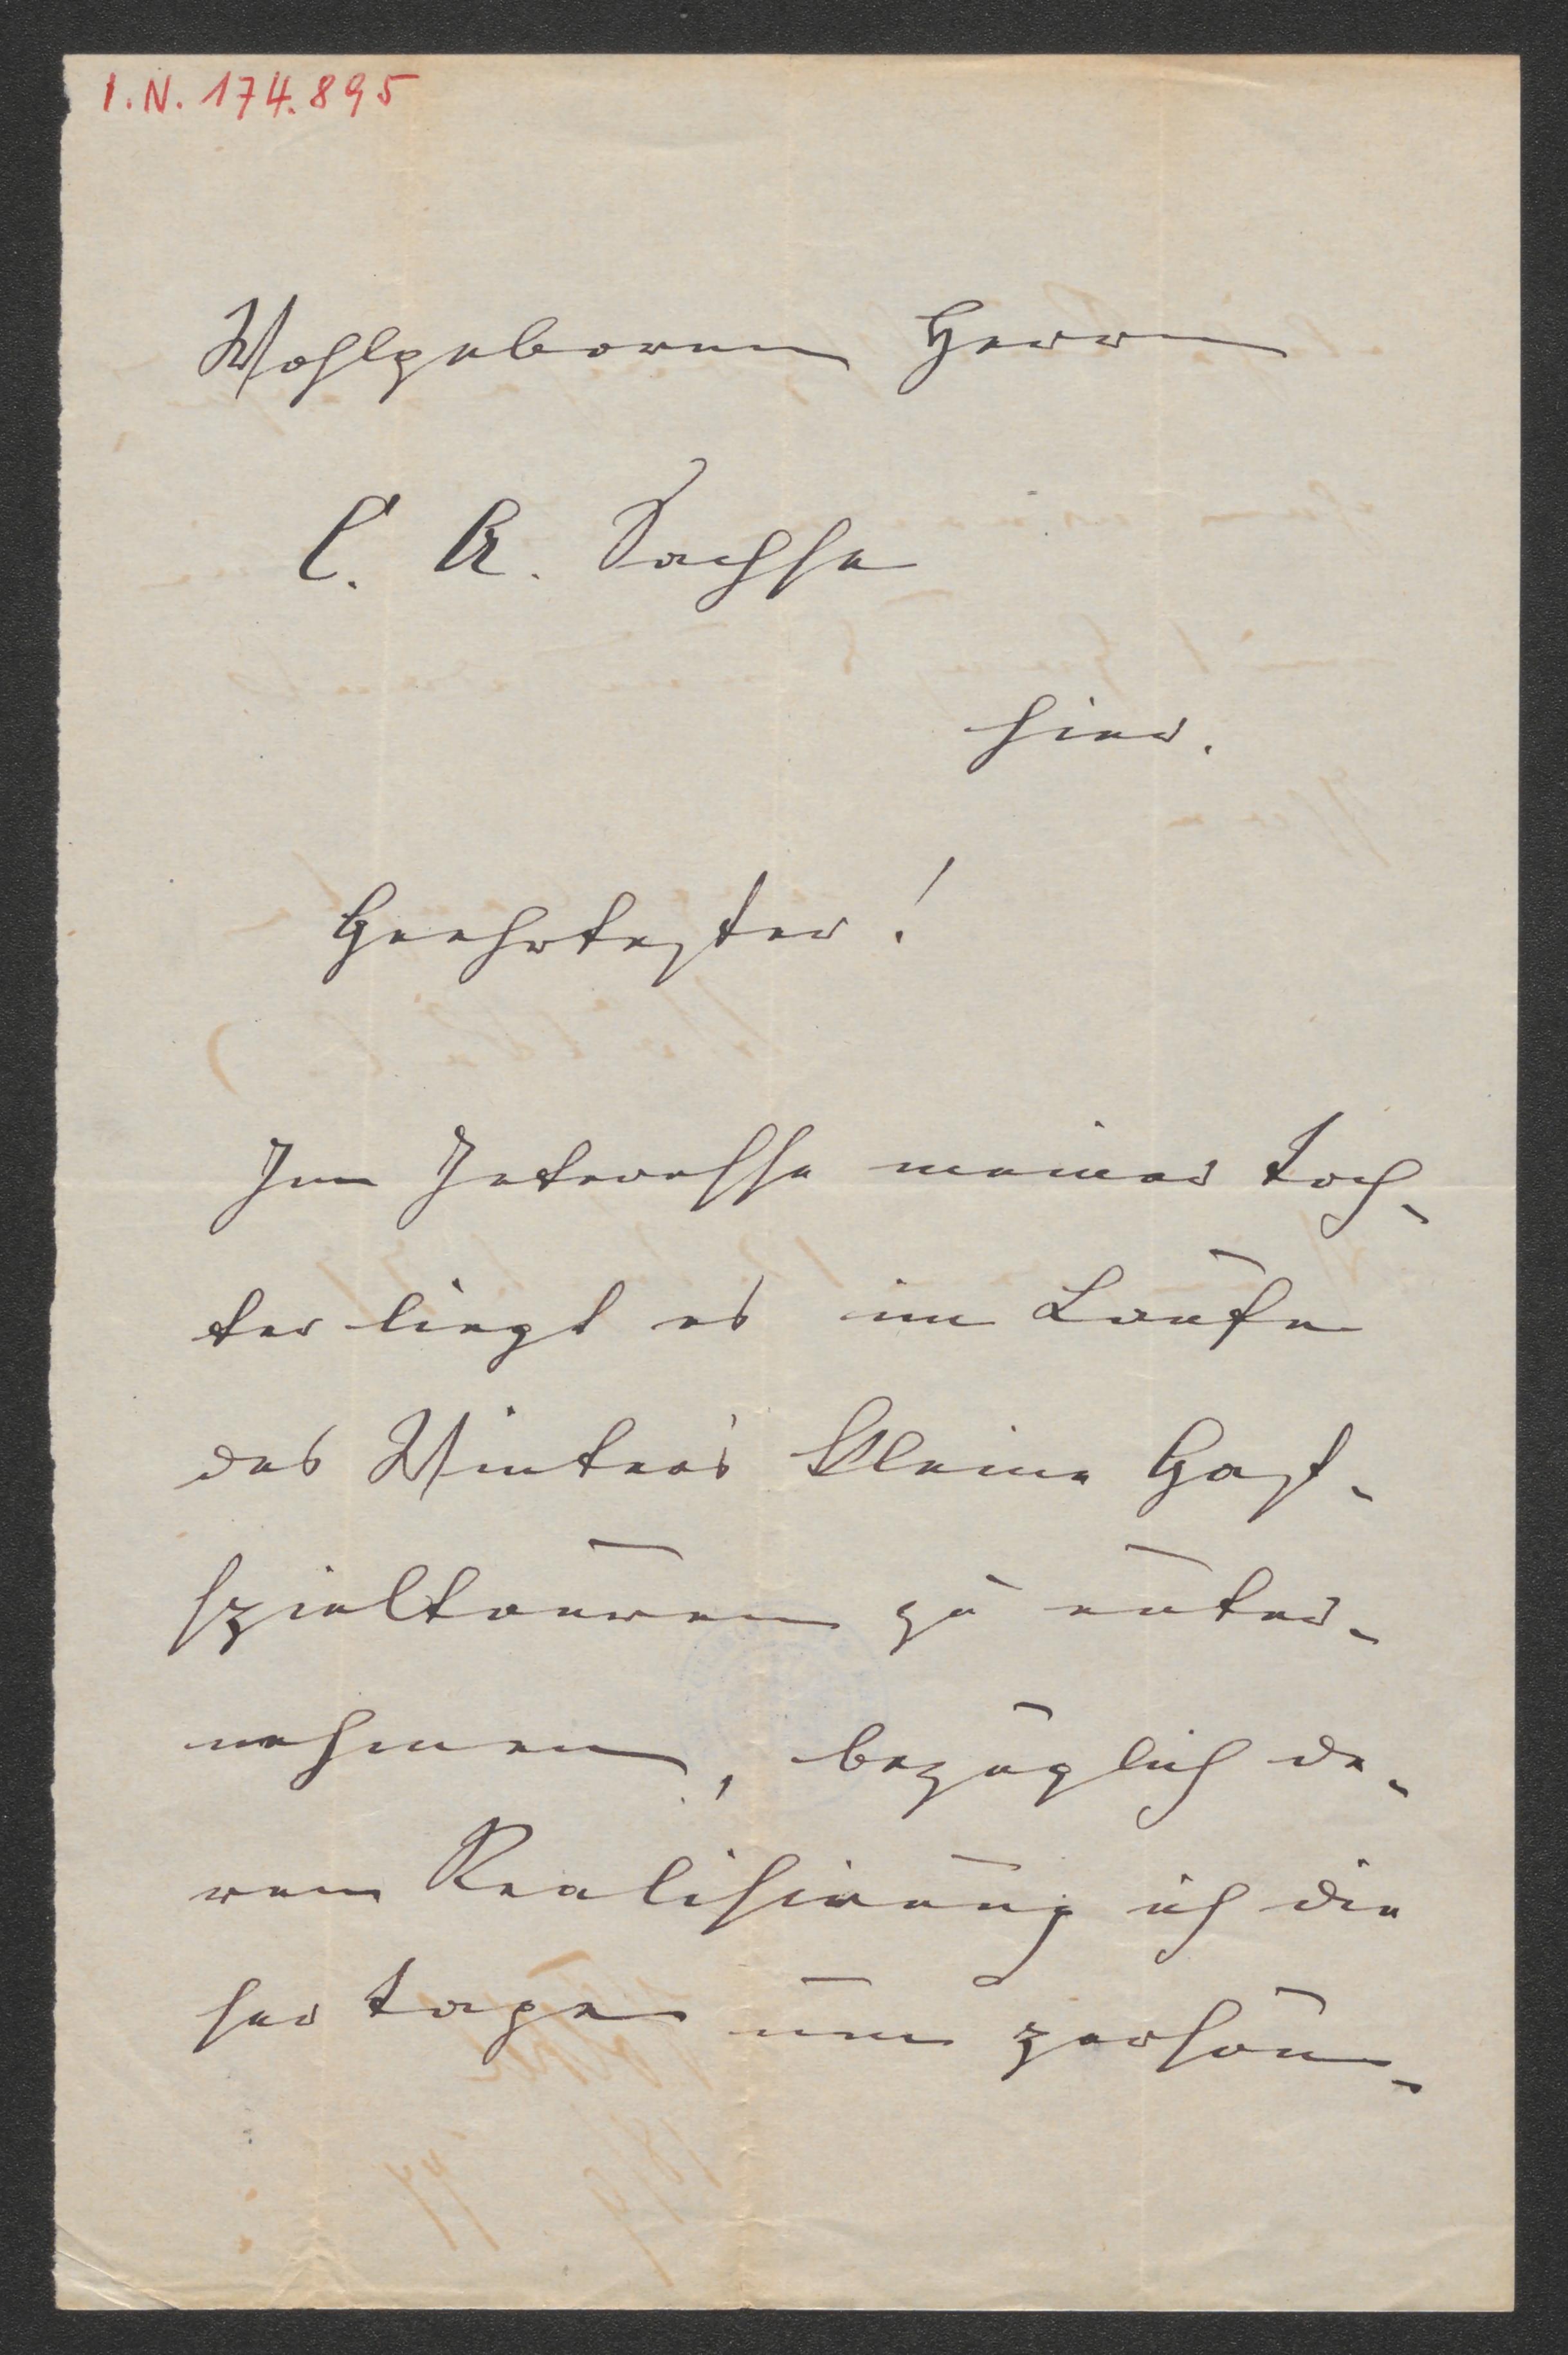 I.N. 174.895
Wohlgeboren Herrn
C. A. Sachse
hier.
Geehrtester!
Im Interesse meiner Toch-
ter liegt es im Laufe
des Winters kleine Gast-
spieltouren zu unter-
nehmen, bezüglich de-
ren Realisirung ich die
ser Tage um persön-